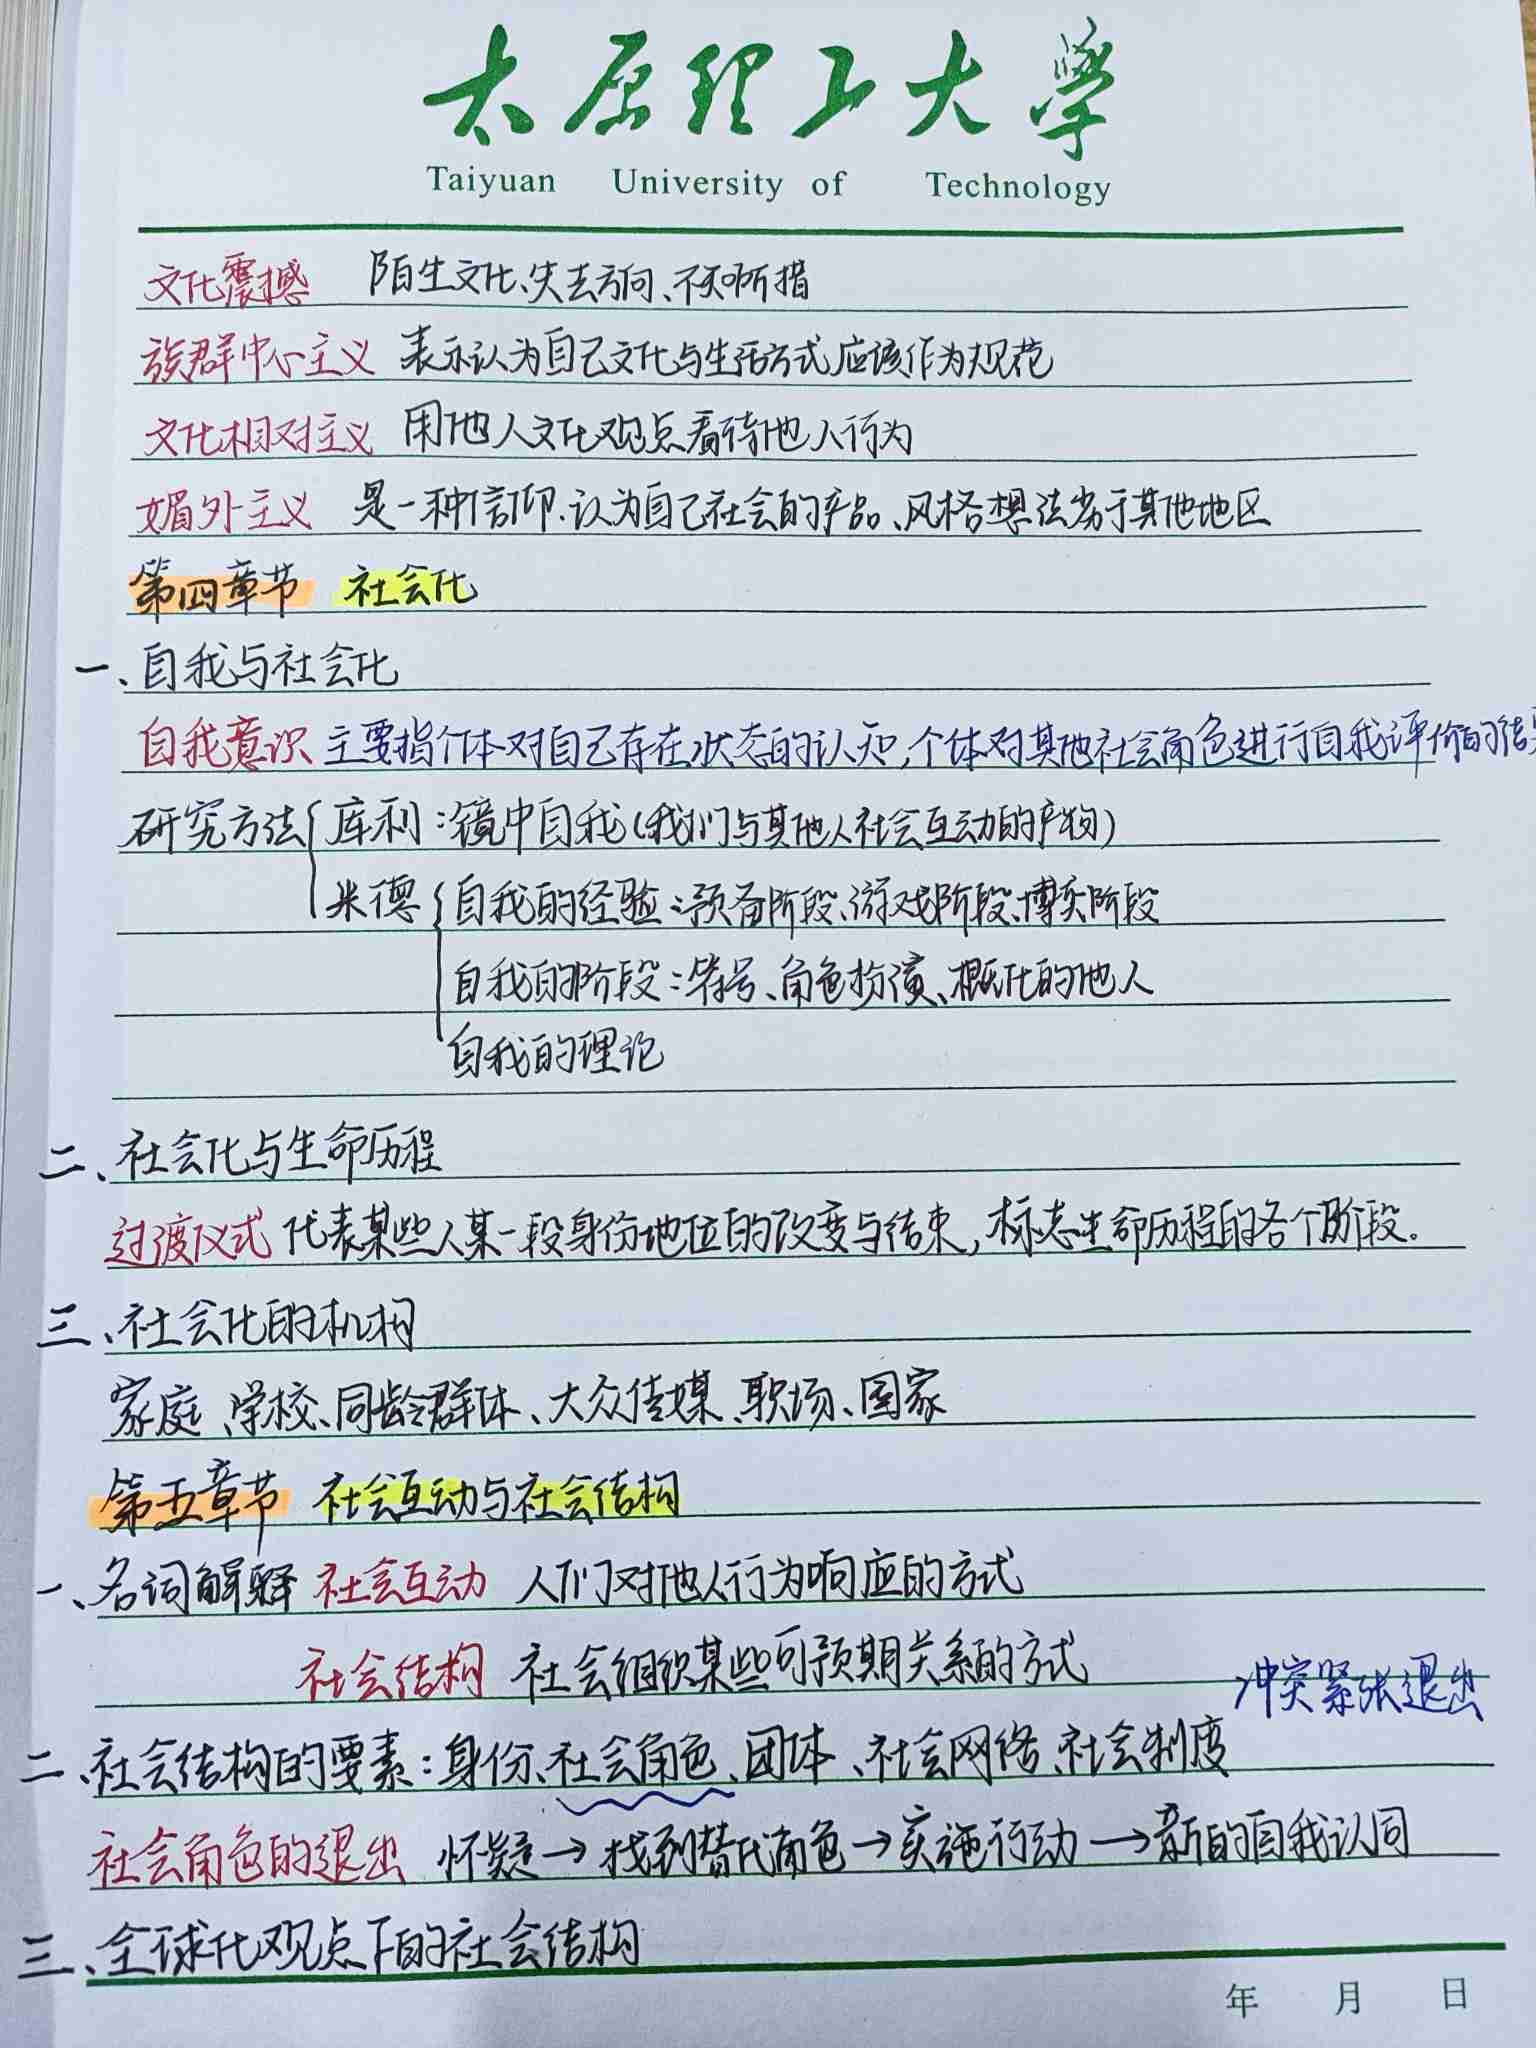 太原理工大学
Taiyuan University of Technology
文化震撼 陌生文化、失去方向、不知所措
族群中心主义 表示认为自己文化与生活方式应该作为规范
文化相对主义 用他人文化观点看待他人行为
媚外主义 是一种信仰.认为自己社会的产品、风格想法劣于其他地区
第四章节 社会化
一、自我与社会化
自我意识 主要指个体对自己存在状态的认知,个体对其他社会角色进行自我评价的结果
研究方法 库利:镜中自我(我们与其他人社会互动的产物)
米德 自我的经验:预备阶段、游戏阶段、博弈阶段
自我的阶段:符号、角色扮演、概化的他人
自我的理论
二、社会化与生命历程
过渡仪式 代表某些人某一段身份地位的改变与结束,标志生命历程的各个阶段。
三、社会化的机构
家庭、学校、同龄群体、大众传媒、职场、国家
第五章节 社会互动与社会结构
一、名词解释 社会互动 人们对他人行为响应的方式
社会结构 社会组织某些可预期关系的方式
冲突紧张退出
二、社会结构的要素:身份、社会角色、团体、社会网络、社会制度
社会角色的退出 怀疑→找到替代角色→实施行动→新的自我认同
三、全球化观点下的社会结构
年 月 日